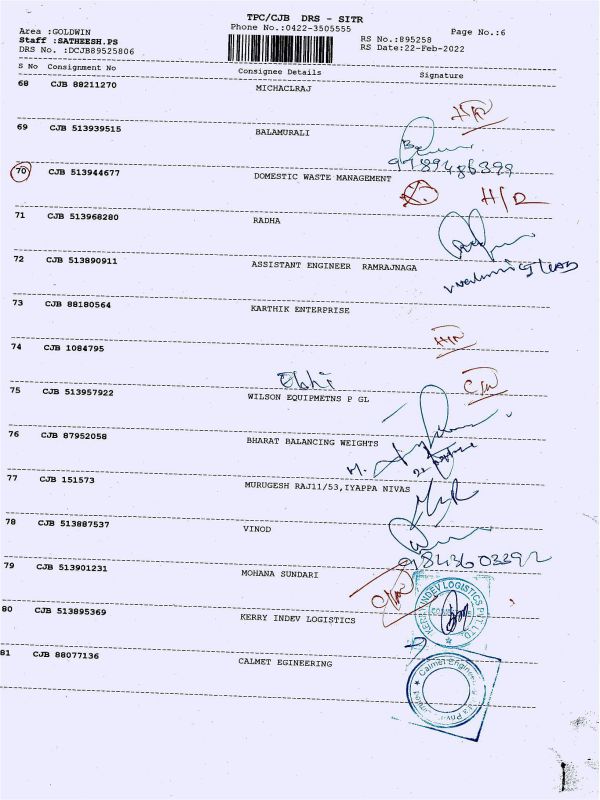 TPC/CJB DRS - SITR
Phone No.:0422-3505555
Page No.:6
Area :GOLDWIN
Staff :SATHEESH.PS
RS No.:895258
DRS No. :DCJB89525806
RS Date:22-Feb-2022
S No Consignment No Consignee Details Signature
68 CJB 88211270 MICHACLRAJ
69 CJB 513939515 BALAMURALI
9489486399
70 CJB 513944677 DOMESTIC WASTE MANAGEMENT
71 CJB 513968280 RADHA
72 CJB 513890911 ASSISTANT ENGINEER RAMRAJNAGA
73 CJB 88180564 KARTHIK ENTERPRISE
74 CJB 1084795
75 CJB 513957922 WILSON EQUIPMETNS P GL
76 CJB 87952058 BHARAT BALANCING WEIGHTS
77 CJB 151573 MURUGESH RAJ11/53,IYAPPA NIVAS
78 CJB 513887537 VINOD
9843603392
79 CJB 513901231 MOHANA SUNDARI
80 CJB 513895369 KERRY INDEV LOGISTICS
KERRY INDEV LOGISTICS PVT LTD
81 CJB 88077136 CALMET EGINEERING